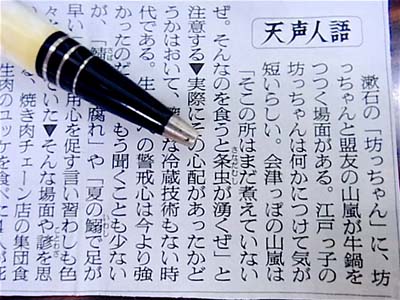 天声人語
漱石の「坊っちゃん」に、坊
っちゃんと盟友の山嵐が牛鍋を
つつく場面がある。江戸っ子の
坊っちゃんは何かにつけて気が
短いらしい。会津っぽの山嵐は
「そこの所はまだ煮えていない
ぜ。そんなのを食うと条虫が湧くぜ」と
注意する▼実際にその心配があったかど
うかはおいて、な冷蔵技術もない時
代である。生への警戒心は今より強
かったのだもう聞くことも少ない
が、「鯖腐れ」や「夏の鰯で足が
早い用心を促す言い習わしも色
々ていた▼そんな場面や諺を思
焼き肉チェーン店の集団食
生肉のユッケを食べた4人が死